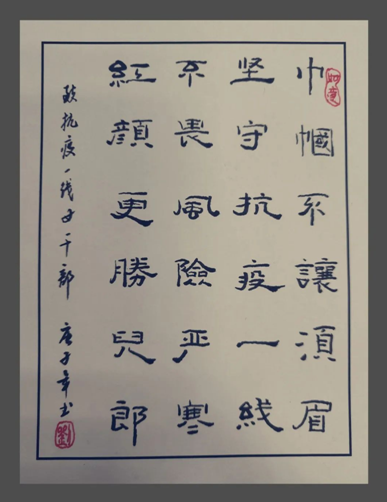 巾帼不讓須眉
坚守抗疫一线
不畏風險严寒
紅顔更勝兒郎
致抗疫一线女干部 庚子年书